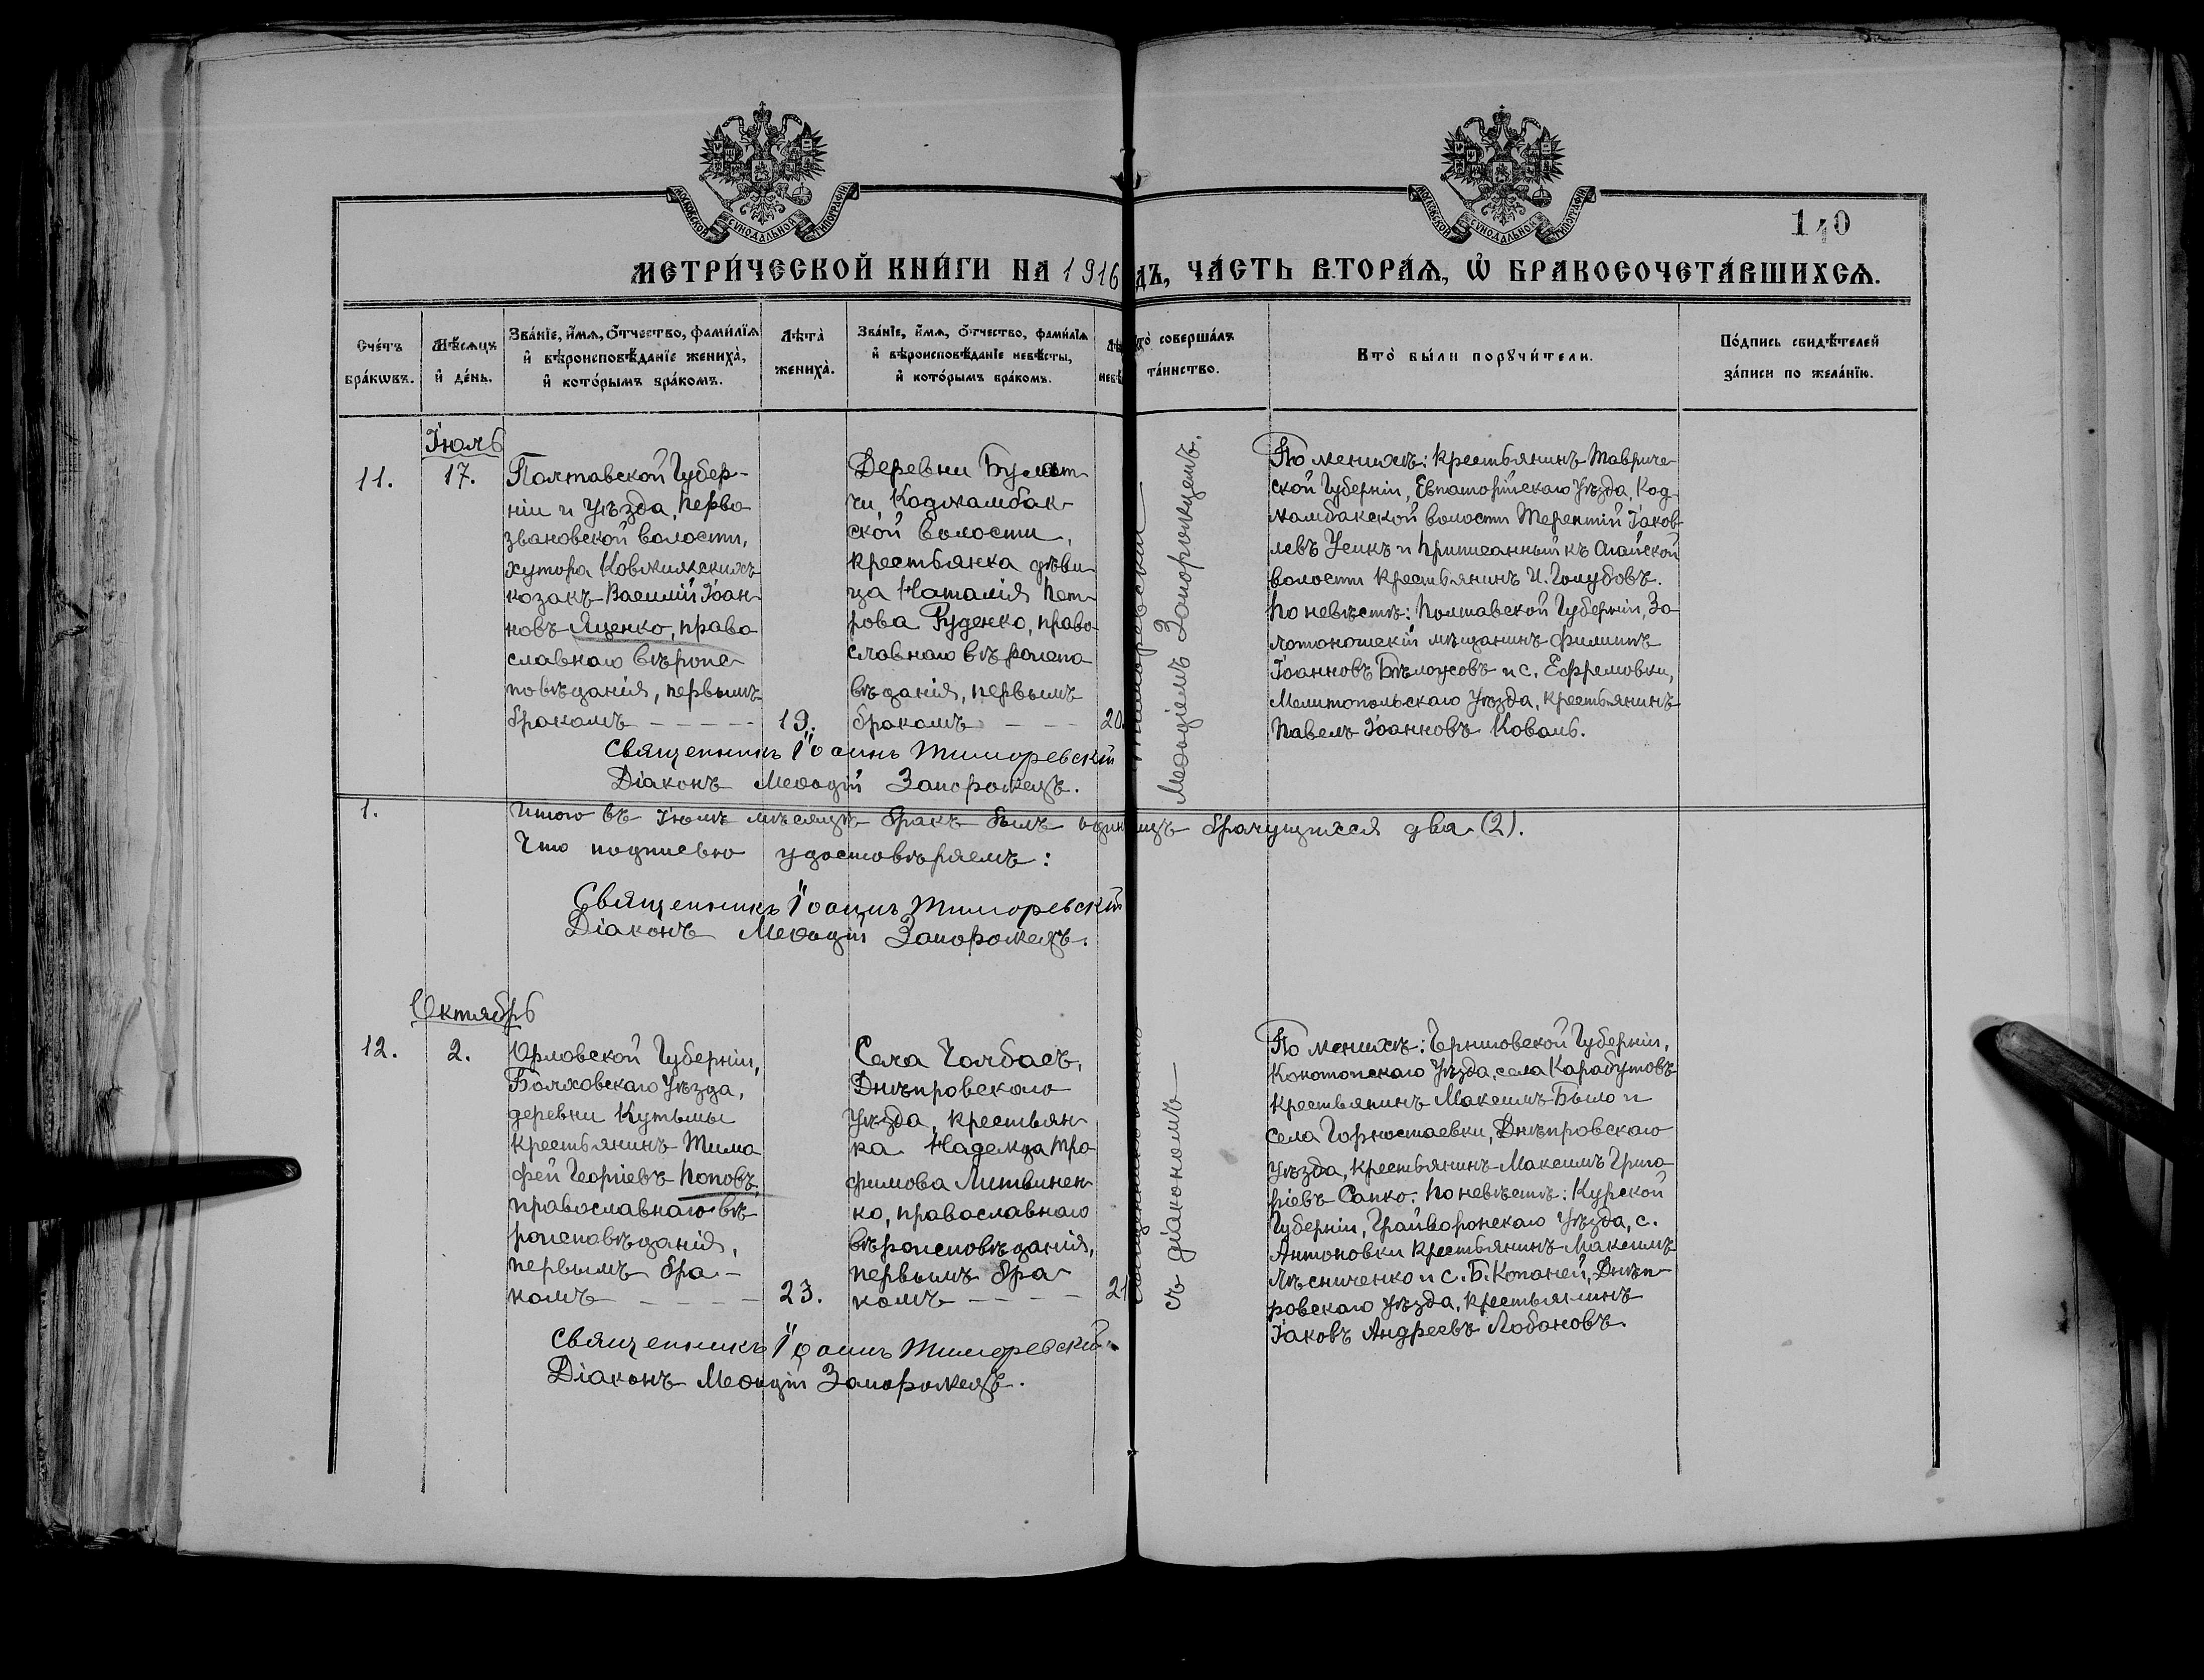 МОСКОВСКОЙ СУНОДАЛЬНОЙ ТИПОГРАФІИ
МОСКОВСКОЙ СУНОДАЛЬНОЙ ТИПОГРАФІИ
140
МЕТРИ́ЧЕСКОЙ КНИ́ГИ НА 1916
ДЪ, ЧА́СТЬ ВТОРА́Ѧ, Ѡ҆ БРАКОСОЧЕТА́ВШИХСѦ.
Сче́тъ
бра́кѡвъ.
Мѣ́сѧцъ
и҆ де́нь.
Зва́нїе, и҆́мѧ, ѻ҆́тчество, фами́лїѧ
и҆ вѣроисповѣ́данїе жениха̀,
и҆ кото́рымъ бра́комъ.
Лѣта̀
жениха̀.
Зва́нїе, и҆́мѧ, ѻ҆́тчество, фами́лїѧ
и҆ вѣроисповѣ́данїе невѣ́сты,
и҆ кото́рымъ бра́комъ.
Лѣ
невѣ
то̀ соверша́лъ
та́инство.
Кто̀ бы́ли порꙋчи́тели.
По́дпись свидѣ́телей
за́писи по жела́нїю.
Іюль
11.
17.
Полтавской Губер-
ніи и Уѣзда, Перво
звановской волости,
хутора Ковжижскихъ
козакъ Василій Іоан
новъ Яценко, право
славнаго вѣроис
повѣданія, первымъ
бракомъ - - - -
19.
Деревни Булат
чи, Коджамбак
ской волости,
крестьянка дѣви
ца Наталія Пет
рова Руденко, право
славнаго вѣроиспо
вѣданія, первымъ
бракомъ - - -
20.
Тиморевскій
Меѳодіемъ Запорожцемъ.
По женихѣ: крестьянинъ Тавриче
ской Губерніи, Евпаторійскаго Уѣзда, Код
жамбакской волости Терентій Іаков
левъ Усикъ и приписанный къ Агайской
волости крестьянинъ И. Голубовъ.
По невѣстѣ: Полтавской Губерніи, Зо
лотоношскій мѣщанинъ Филиппъ
Іоанновъ Бѣлоусовъ и с. Ефремовки,
Мелитопольскаго Уѣзда, крестьянинъ
Павелъ Іоанновъ Коваль.
Священникъ Іоаннъ Тиморевскій
Діаконъ Меѳодій Запорожецъ.
1.
Итого въ Іюлѣ мѣсяцѣ бракъ былъ один
цъ брачущихся два (2).
Что подписью удостовѣряемъ:
Священникъ Іоаннъ Тиморевскій
Діаконъ Меѳодій Запорожецъ.
Октябрь
12.
2.
Орловской Губерніи,
Болховскаго Уѣзда,
деревни Кутьмы
крестьянинъ Тимо
фей Георгіевъ Поповъ,
православнаго вѣ
роисповѣданія,
первымъ бра-
комъ - - - -
23.
Села Чолбасъ,
Днѣпровскаго
Уѣзда, крестьян
ка Надежда Тро
фимова Литвинен
ко, православнаго
вѣроисповѣданія,
первымъ бра
комъ - - - -
21
съ діакономъ
По женихѣ: Черниговской Губерніи,
Конотопскаго Уѣзда, села Карабутовъ
крестьянинъ Максимъ Было и
села Горностаевки, Днѣпровскаго
Уѣзда, крестьянинъ Максимъ Григо
ріевъ Сапко. По невѣстѣ: Курской
Губерніи, Грайворонскаго Уѣзда, с.
Антоновки крестьянинъ Максимъ
Лѣсниченко и с. Б. Копаней, Днѣп
ровскаго Уѣзда, крестьянинъ
Іаковъ Андреевъ Лобановъ.
Священникъ Іоаннъ Тиморевскій
Діаконъ Меѳодій Запорожецъ.